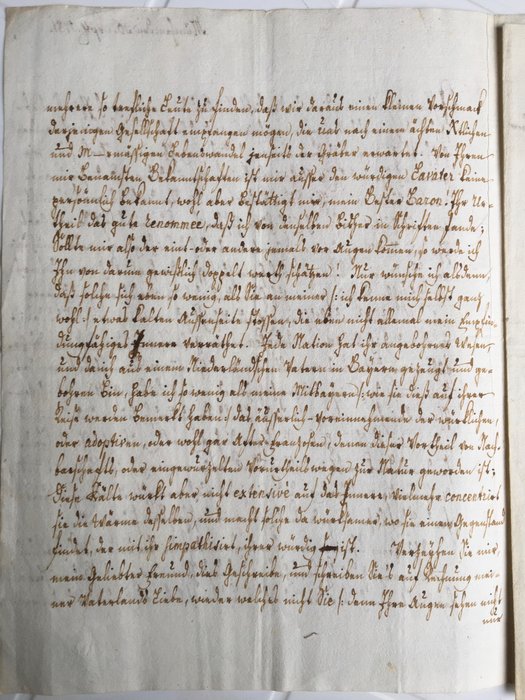 mehrere so trefliche Leute zu finden, daß wir daraus einen kleinen Vorschmack
derjenigen Gesellschaft empfangen mögen, die uns nach einem ächten Xlichen
und M__mässigen Lebenswandel jenseits der Gräber erwartet. Von Ihren
mir benannten Bekanntschaften ist mir ausser den würdigen Lavater keine
persönnlich bekannt, wohl aber bestättigt mir, mein bester Baron! Ihr Ur-
theil das gute renommee, daß ich von denselben bisher in Schriften fande;
Sollte mir ein oder andere jemals vor Augen kommen, so werde ich
Ihn von darum gewißlich doppelt werth schätzen! Nur wünschte ich alsdenn,
daß solche sich eben so wenig, als Sie an meiner /: ich kenne mich selbst ganz
wohl :/ etwas kalten Aussenseite stossen, die eben nicht allemal mein Empfin-
dungsfähiges Innere verräthet. Jede Nation hat ihr angebohrnes Wesen,
und da ich aus einem Niederländischen Vatern in Bayern gezeugt und ge-
bohren bin, habe ich so wenig als meine Mitbayern /: wie Sie dieß auf ihrer
Reise werden bemerkt haben :/ das äusserlich-Voreinnehmende der würklichen,
oder adoptiven, oder wohl gar Franzosen, denen dieser Vortheil von Nach-
barschafts, oder eingewurzelten Vorurtheils wegen zur Natur geworden ist;
Diese Kälte würkt aber nicht extensive auf das Innere, vielmehr concentrirt
sie die Wärme desselben, und macht solche da würksamer, wo sie einen Gegenstand
findet, der mit ihr simpathisirt, ihrer würdig ist. Verzeyhen Sie nur,
mein Geliebter Freund, dies Geschreibe, und schreiben Sie's auf Rechnung mei-
ner Vaterlands Liebe, wieder welches nicht Sie /: denn Ihre Augen sehen nicht
nur